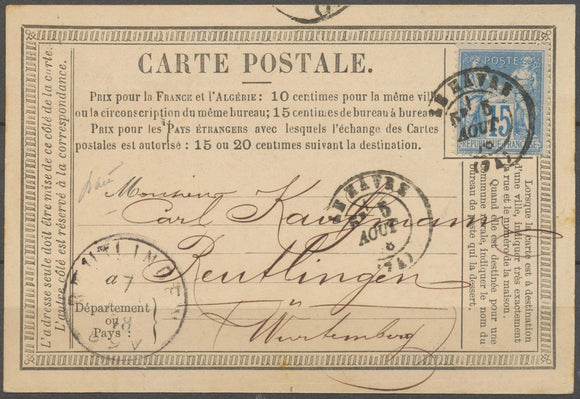 CARTE POSTALE.
PRIX pour la FRANCE et l'ALGÉRIE: 10 centimes pour la même vill
ou la circonscription du même bureau; 15 centimes de bureau à bureau
PRIX pour les PAYS ÉTRANGERS avec lesquels l'échange des Cartes
postales est autorisé: 15 ou 20 centimes suivant la destination.
L'adresse seule doit être mise de ce côté de la carte.
L'autre côté est réservé à la correspondance.
POSTE
15
RÉPUBLIQUE FRANÇAISE
LE HAVRE
5
AOUT
(74)
Monsieur
Carl Kaufmann
LE HAVRE
5
AOUT
(74)
Reutlingen
Département
ou
Pays:
Wurtemberg
Lorsque la carte est à destination
d'une ville, indiquer très exactement
la rue et le numéro de la maison.
Quand elle est destinée pour une
commune rurale, indiquer le nom du
bureau de poste qui la dessert.